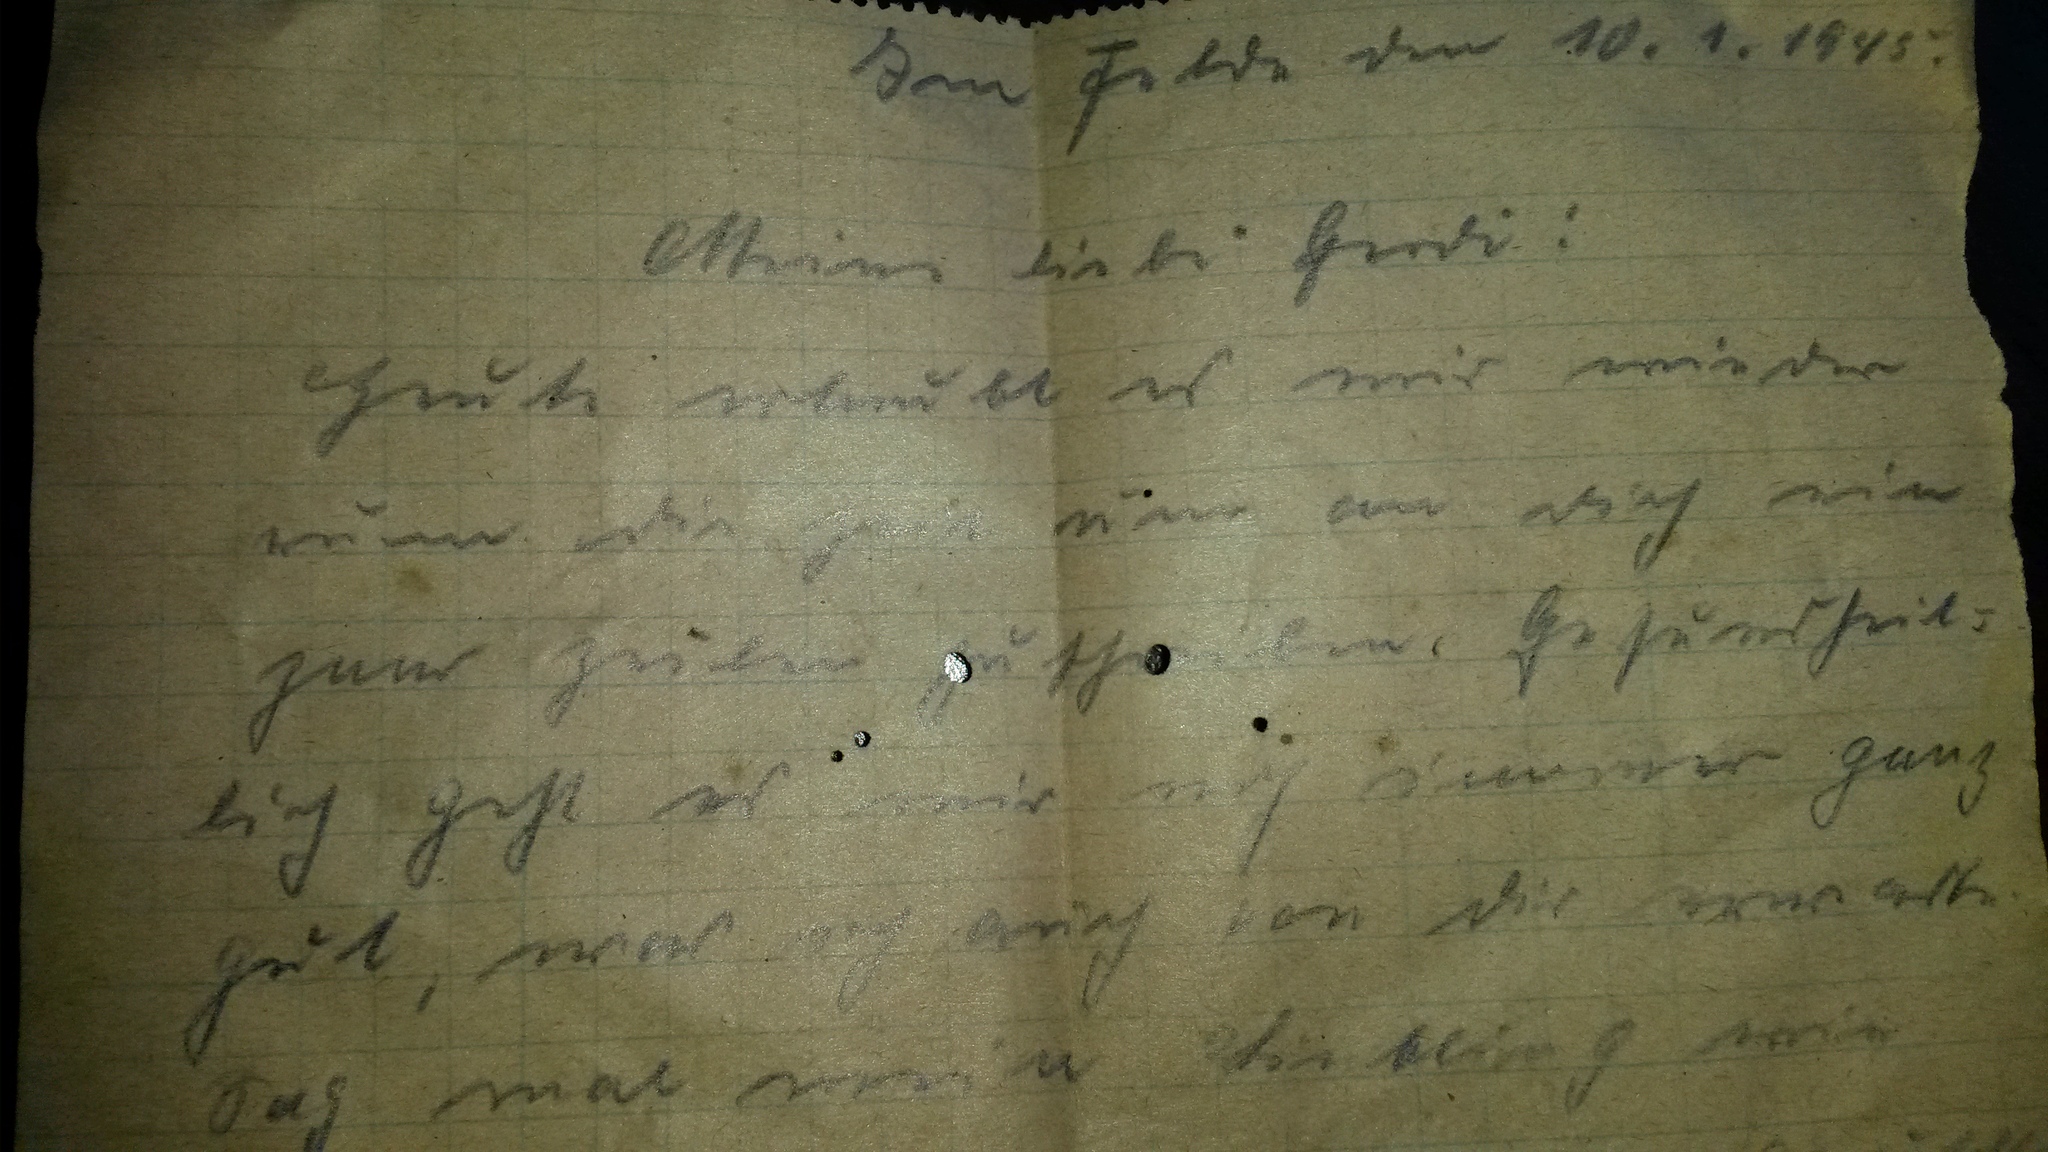 Im Felde den 10.1.1945.
Meine liebe Gerdi!
Heute erlaubt es mir wieder
rum die zeit um an dich ein
zwei Zeilen zuschreiben. Gesundheit-
lich geht es mir noch immer ganz
gut, was ich auch von dir erwarte.
Sag mal mein Liebling wie